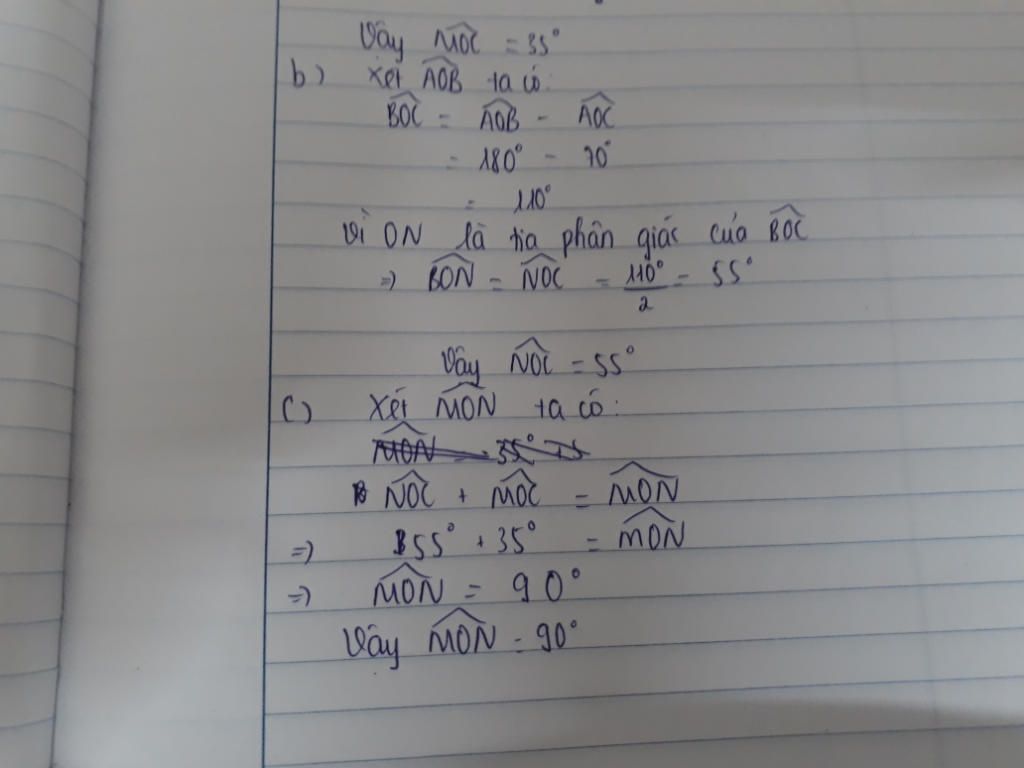 Vậy M̂OC = 35°
b) Xét ÂOB ta có:
B̂OC = ÂOB - ÂOC
= 180° - 70°
= 110°
Vì ON là tia phân giác của B̂OC
=> B̂ON = N̂OC = 110°/2 = 55°
Vậy N̂OC = 55°
C) Xét M̂ON ta có:
M̂ON = 35°
N̂OC + M̂OC = M̂ON
=> 55° + 35° = M̂ON
=> M̂ON = 90°
Vậy M̂ON = 90°